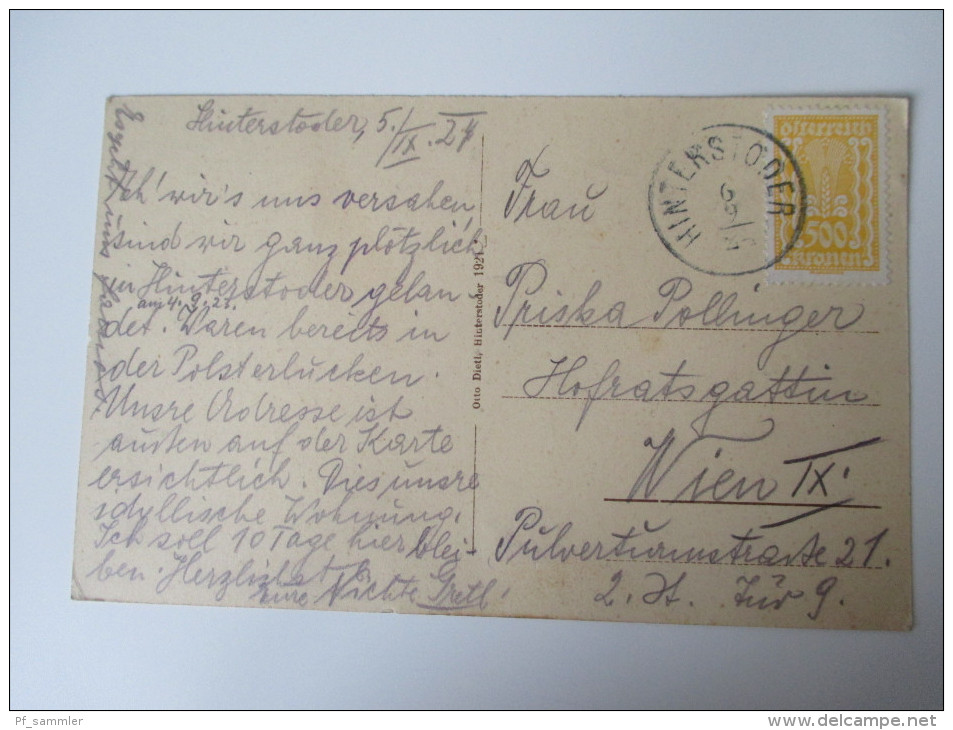 Hinterstoder, 5./IX. 24
Eh' wir's uns versahen
sind wir ganz plötzlich
in Hinterstoder gelan
am 4. 9.
det. Waren bereits in
der Polsterlucken.
Unsre Adresse ist
außen auf der Karte
ersichtlich. Dies unsre
idyllische Wohnung.
Ich soll 10 Tage hier blei-
ben. Herzlichst
Eure Nichte Gretl.
Otto Dietl, Hinterstoder 192
Frau
Priska Pollinger
Hofratsgattin
Wien IX.
Pulverturmstraße 21.
2. St. Tür 9.
HINTERSTODER
österreich
500
kronen
Pf_sammler
www.delcampe.net